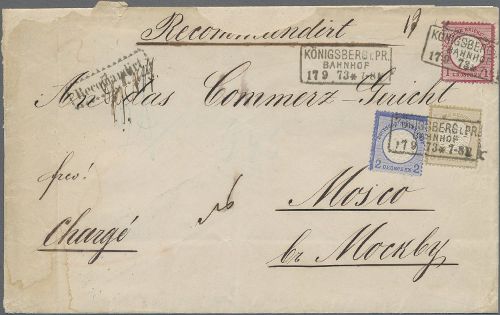 Recommandirt
KÖNIGSBERG i. PR.
BAHNHOF
17 9 73 * 7-8N
KÖNIGSBERG i. PR.
BAHNHOF
17 9 73 *
1 GROSCHEN 1
Recommandirt
An das Commerz-Gericht
KÖNIGSBERG i. PR.
BAHNHOF
17 9 73 * 7-8N
2 GROSCHEN 2
frco!
Mosco
Chargé
въ Москву